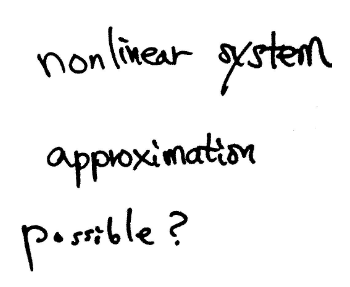 nonlinear system
approximation
possible?